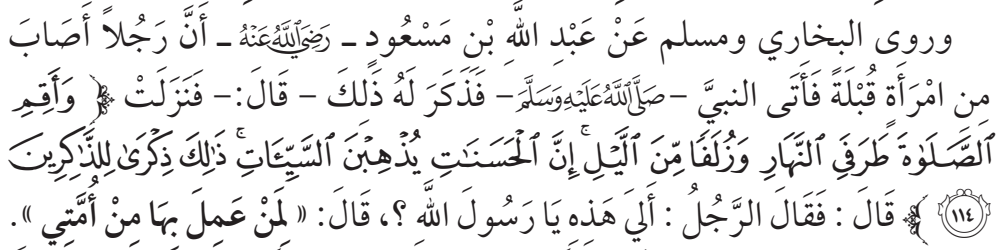 وروى البخاري ومسلم عَنْ عَبْدِ اللَّهِ بْنِ مَسْعُودٍ ـ رَضِيَ اللَّهُ عَنْهُ ـ أَنَّ رَجُلاً أَصَابَ
مِن امْرَأَةٍ قُبْلَةً فَأَتَى النبيَّ –صَلَّى اللَّهُ عَلَيْهِ وَسَلَّمَ– فَذَكَرَ لَهُ ذَلِكَ – قَالَ:– فَنَزَلَتْ ﴿ وَأَقِمِ
ٱلصَّلَوٰةَ طَرَفَيِ ٱلنَّهَارِ وَزُلَفًا مِّنَ ٱلَّيْلِ ۚ إِنَّ ٱلْحَسَنَٰتِ يُذْهِبْنَ ٱلسَّيِّـَٔاتِ ۚ ذَٰلِكَ ذِكْرَىٰ لِلذَّٰكِرِينَ
١١٤ ﴾ قَالَ : فَقَالَ الرَّجُلُ : أَلِيَ هَذِهِ يَا رَسُولَ اللَّهِ ؟، قَالَ: « لِمَنْ عَمِلَ بِهَا مِنْ أُمَّتِي ».